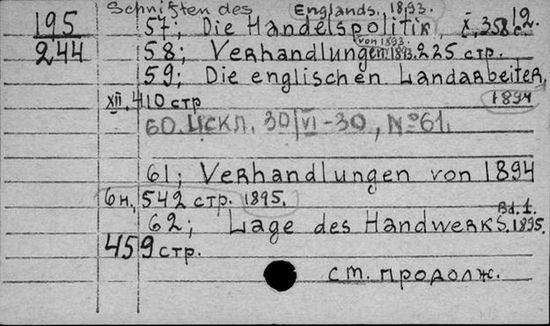 Schriften des
195
244
57; Die Handelspolitik Englands. 1893. X, 358 с. 12.
58; Verhandlungen von 1893. 1893. 225 стр.
59; Die englischen Landarbeiter,
XII, 410 стр 1894
60. ИСКЛ. 30/VI-30, №61.
61; Verhandlungen von 1894
6н, 542 стр. 1895.
62; Lage des Handwerks. Bd. 1. 1895.
459 стр.
см. продолж.